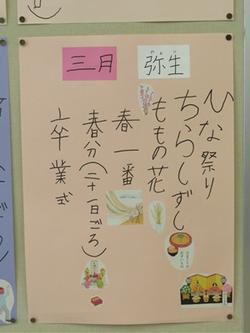 三月
弥生
やよい
ひな祭り
ちらしずし
ももの花
春一番
春分(二十一日ごろ)
卒業式